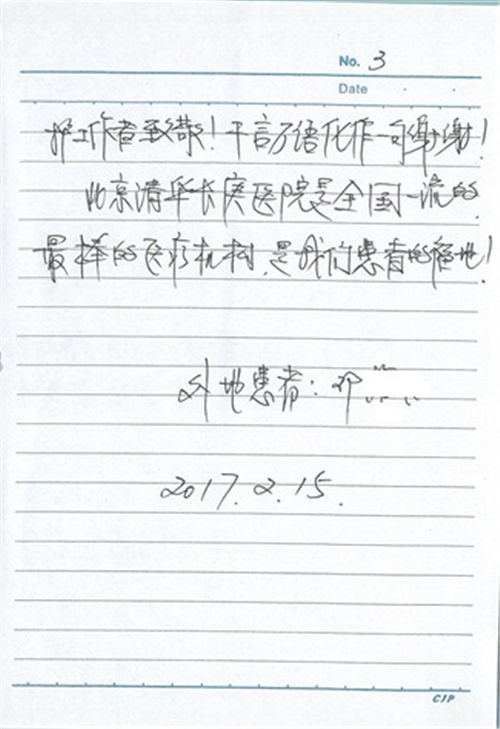 No. 3
Date
护工作者致敬!千言万语化作一句谢谢!
北京清华长庚医院是全国一流的
最棒的医疗机构,是我们患者的福地!
外地患者:邓
2017.2.15.
CIP